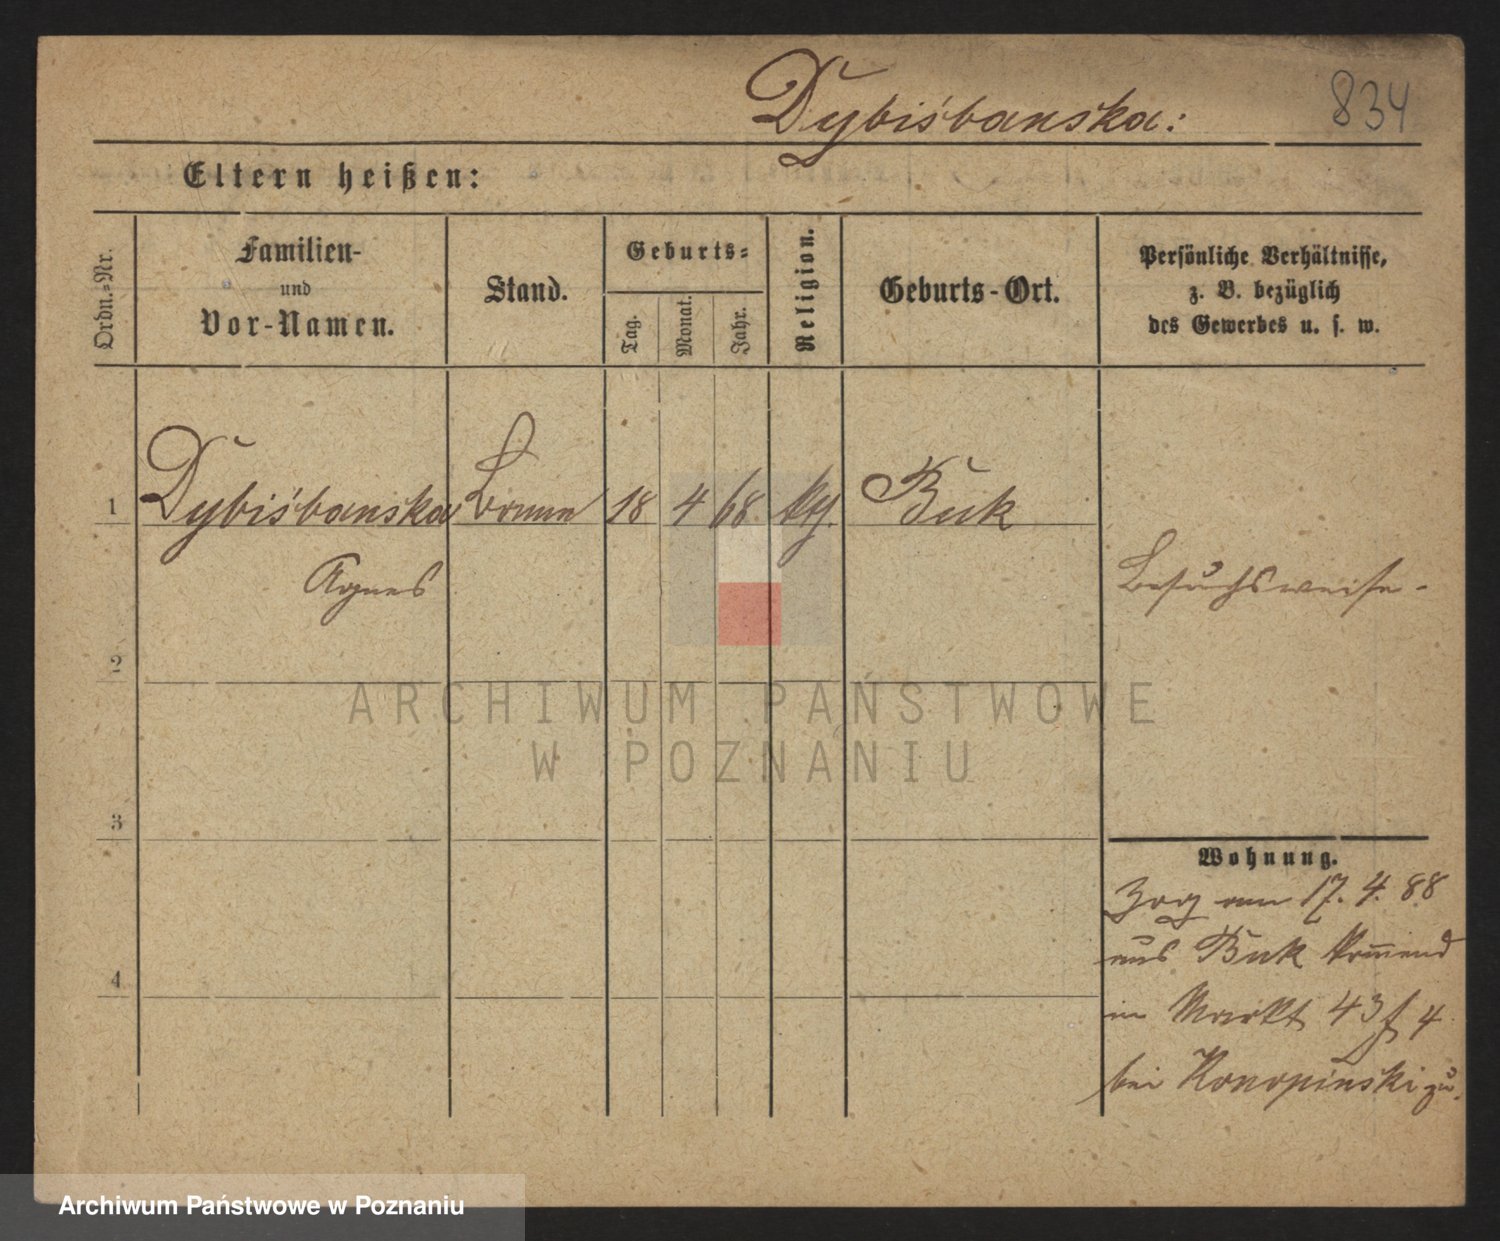 Dybiśbanska:
834
Eltern heißen:
Ordn.-Nr.
Familien-
und
Vor-Namen.
Stand.
Geburts-
Tag.
Monat.
Jahr.
Religion.
Geburts-Ort.
Persönliche Verhältnisse,
z. B. bezüglich
des Gewerbes u. s. w.
1 Dybiśbanska 18 4 68 Buk
Agnes
Besuchsweise.
2
3
4
Wohnung.
Zog am 17. 4. 88
aus Buk
im Markt 43 4
bei Konopinski zu.
ARCHIWUM PAŃSTWOWE
W POZNANIU
Archiwum Państwowe w Poznaniu